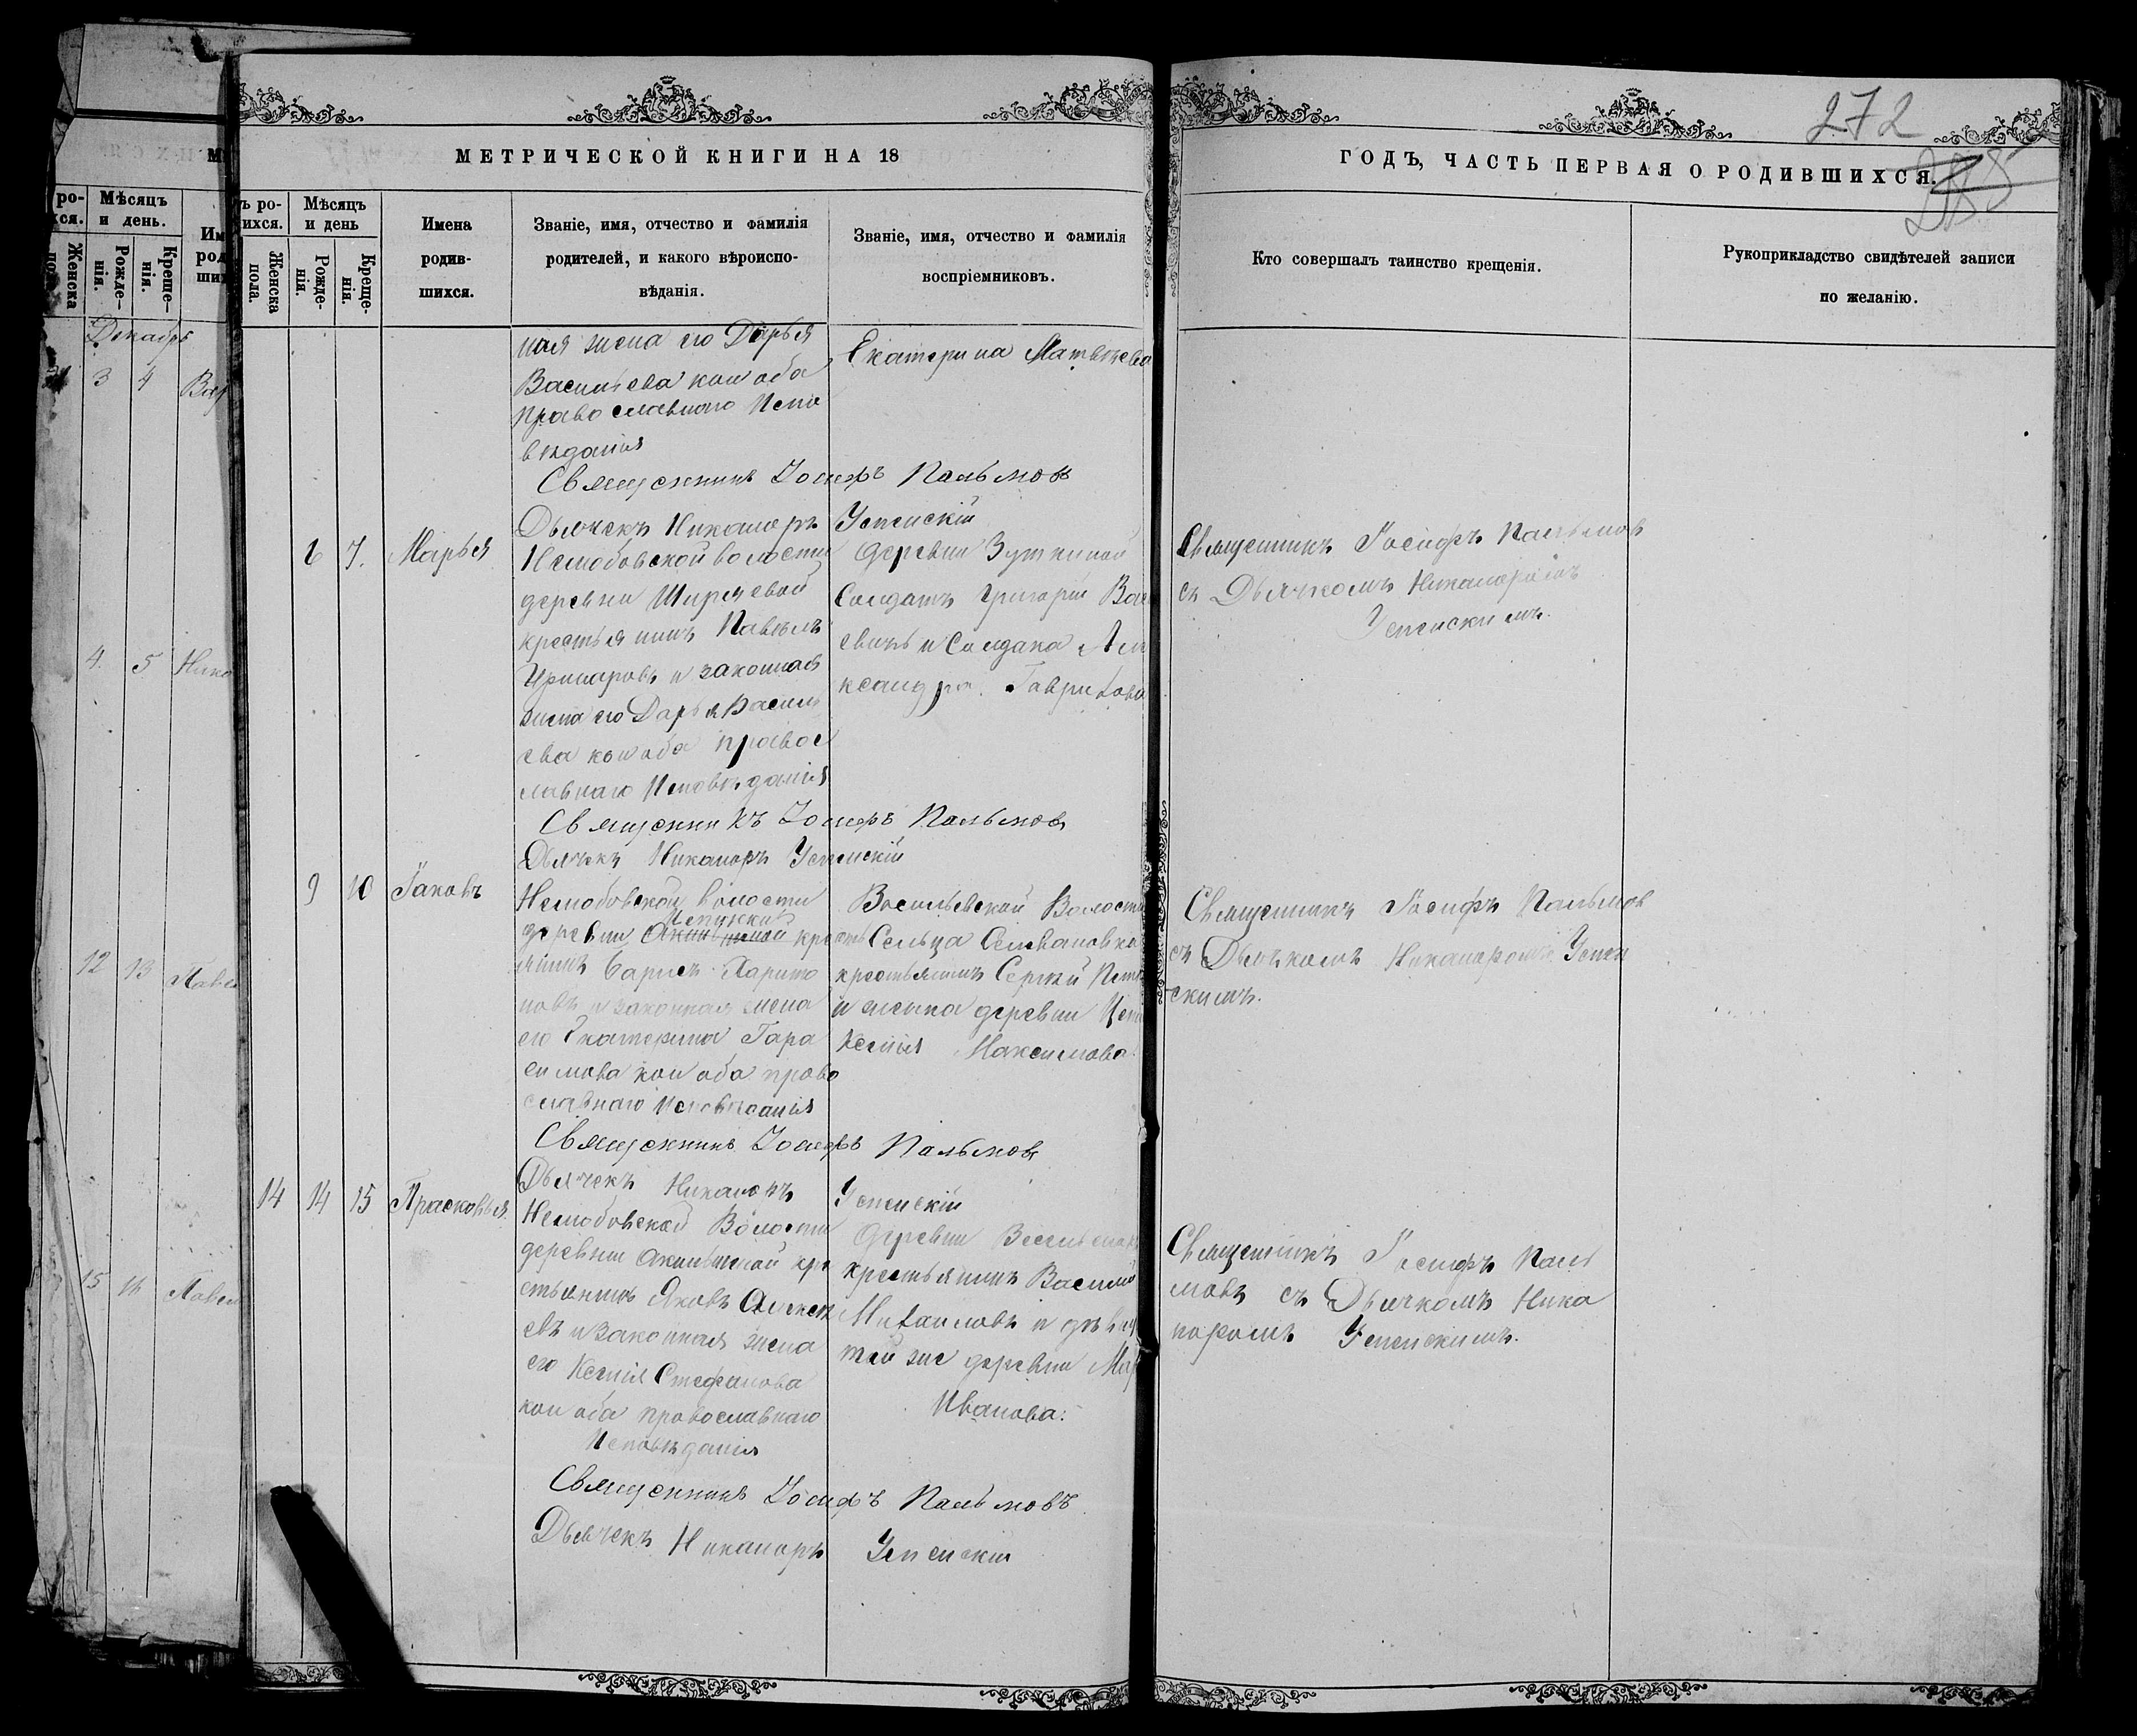 272
МЕТРИЧЕСКОЙ КНИГИ НА 18
ГОДЪ, ЧАСТЬ ПЕРВАЯ О РОДИВШИХСЯ.
ро-
ся.
Мѣсяцъ
и день.
Женска
Рожде-
нія.
Креще-
нія.
ъ ро-
ихся.
Женска
пола.
Мѣсяцъ
и день
Рожде-
нія.
Креще-
нія.
Имена
родив-
шихся.
Званіе, имя, отчество и фамилія
родителей, и какого вѣроиспо-
вѣданія.
Званіе, имя, отчество и фамилія
воспріемниковъ.
Кто совершалъ таинство крещенія.
Рукоприкладство свидѣтелей записи
по желанію.
Декабрь
3 4
4. 5 Нико
12 13 Павел
15 16 Павел
ная жена его Дарья
Васильева кои оба
Православнаго Испо
вѣданія
Екатерина Матвѣева
Священникъ Іосифъ Пальмовъ
Дьячекъ Никаноръ Успенскій
6 7. Марья
деревни Ширяевой
крестьянинъ Павелъ
и законная
жена его Дарья Василь
ева кои оба правос
лавнаго Исповѣданія
деревни
Солдатъ Григорій Васи
и Солдака Але
ксандра Гаврилова
Священникъ Іосифъ Пальмовъ
съ Дьячкомъ Никаноромъ
Успенскимъ.
Священникъ Іосифъ Пальмовъ
Дьячекъ Никаноръ Успенскій
9 10 Іаковъ
волости
деревни крестья
нинъ Борисъ Харито
новъ и законная жена
его Екатерина Гара
симова кои оба право
славнаго Исповѣданія
Васильевской Волости
Сельца Селивановка
крестьянинъ Сергѣй Петр
деревни
Ксенія Максимова
Священникъ Іосифъ Пальмов
съ Дьячкомъ Никаноромъ Успен
скимъ.
Священникъ Іосифъ Пальмовъ
Дьячекъ Никаноръ Успенскій
14 14 15 Прасковья
Волости
деревни кре
стьянинъ Яковъ Алексѣ
евъ и законная жена
его Ксенія Стефанова
кои оба православнаго
Исповѣданія
Деревни
крестьянинъ Василий
Михаиловъ и дѣвица
той же деревни Мар
Иванова.
Священникъ Іосифъ Паль
мовъ съ Дьячкомъ Ника
норомъ Успенскимъ.
Священникъ Іосифъ Пальмовъ
Дьячекъ Никаноръ Успенскій